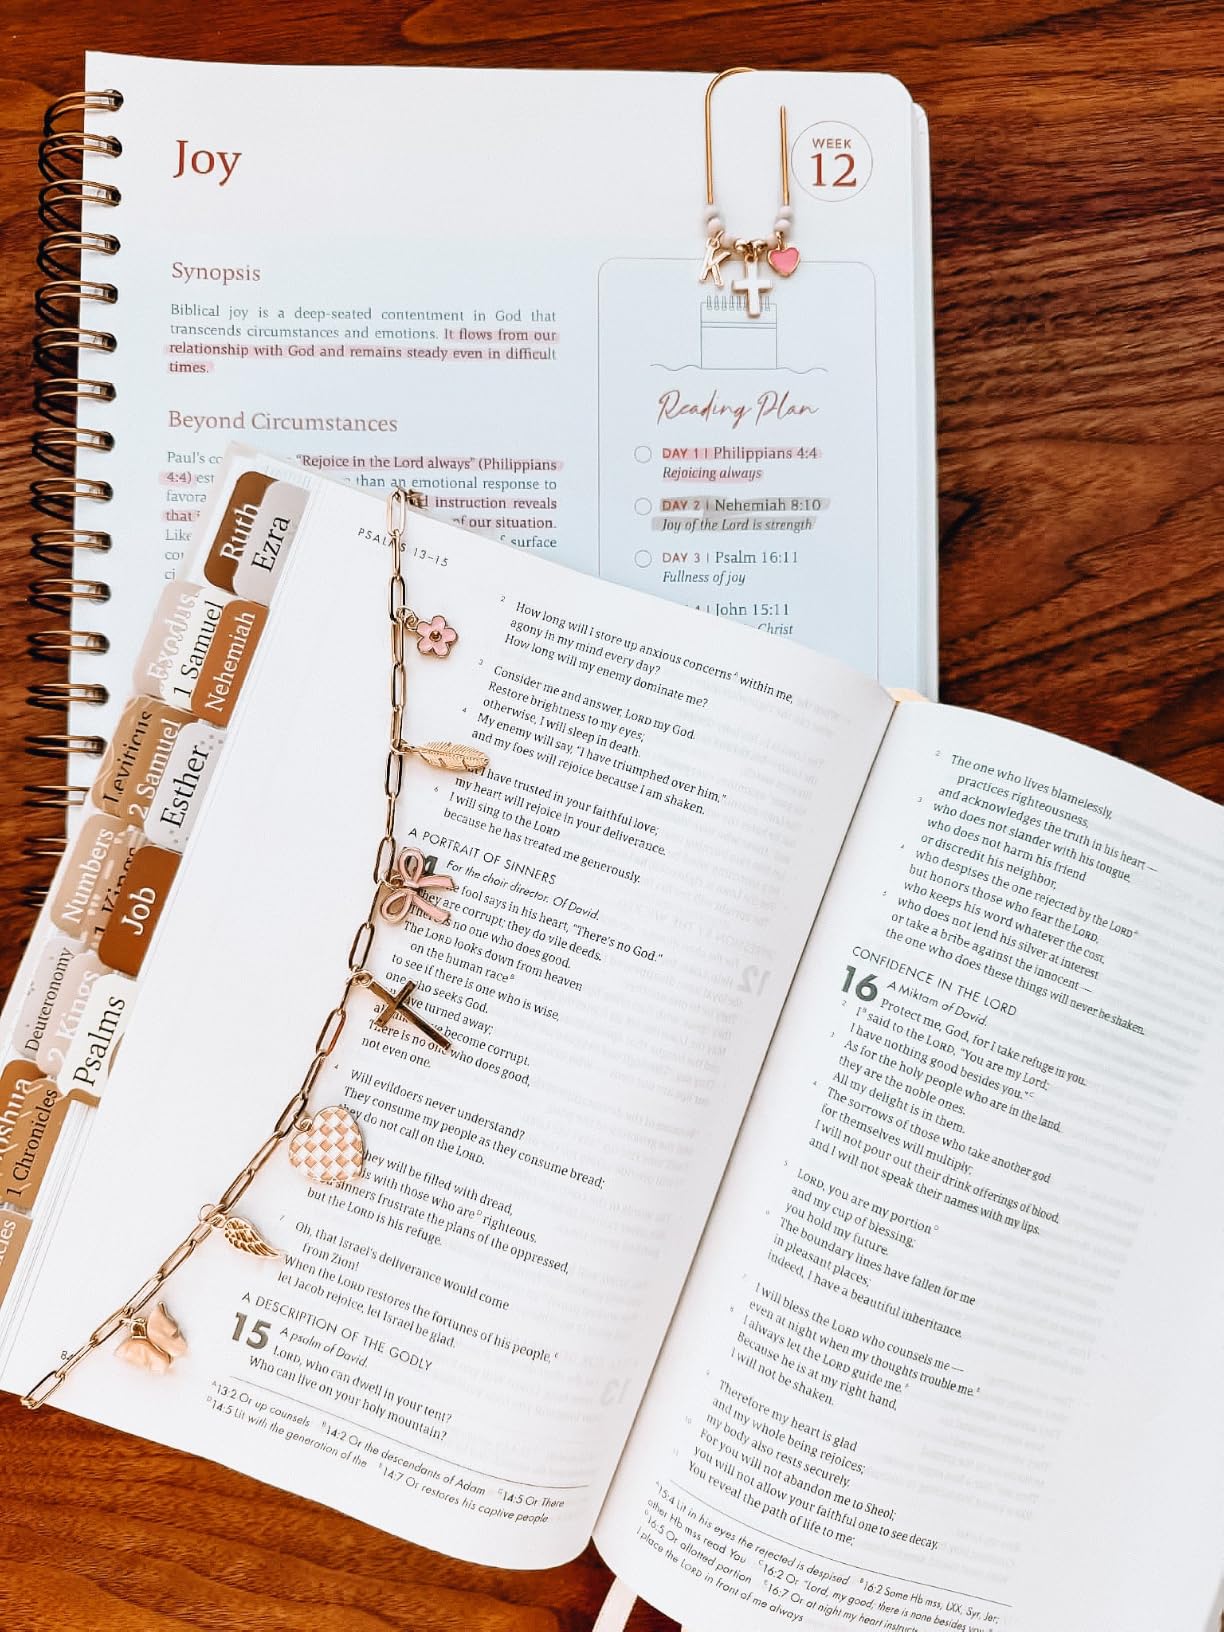 Joy
WEEK
12
Synopsis
Biblical joy is a deep-seated contentment in God that
transcends circumstances and emotions. It flows from our
relationship with God and remains steady even in difficult
times.
Beyond Circumstances
Paul's "Rejoice in the Lord always" (Philippians
4:4) than an emotional response to
instruction reveals
of our situation.
Like surface
Reading Plan
DAY 1 | Philippians 4:4
Rejoicing always
DAY 2 | Nehemiah 8:10
Joy of the Lord is strength
DAY 3 | Psalm 16:11
Fullness of joy
John 15:11
Christ
K
Ruth
Ezra
Exodus
1 Samuel
Nehemiah
Leviticus
2 Samuel
Esther
Numbers
Job
Deuteronomy
2 Kings
Psalms
1 Chronicles
PSALMS 13–15
2 How long will I store up anxious concerns A within me,
agony in my mind every day?
How long will my enemy dominate me?
3 Consider me and answer, LORD my God.
Restore brightness to my eyes;
otherwise, I will sleep in death.
4 My enemy will say, "I have triumphed over him,"
and my foes will rejoice because I am shaken.
I have trusted in your faithful love;
my heart will rejoice in your deliverance.
6 I will sing to the LORD
because he has treated me generously.
A PORTRAIT OF SINNERS
For the choir director. Of David.
fool says in his heart, "There's no God."
They are corrupt; they do vile deeds.
There is no one who does good.
The LORD looks down from heaven
on the human race B
to see if there is one who is wise,
one who seeks God.
have turned away;
become corrupt.
There is no one who does good,
not even one.
4 Will evildoers never understand?
They consume my people as they consume bread;
they do not call on the LORD.
they will be filled with dread,
is with those who are D righteous.
sinners frustrate the plans of the oppressed,
but the LORD is his refuge.
7 Oh, that Israel's deliverance would come
from Zion!
When the LORD restores the fortunes of his people, E
let Jacob rejoice, let Israel be glad.
A DESCRIPTION OF THE GODLY
15 A psalm of David.
LORD, who can dwell in your tent?
Who can live on your holy mountain?
A 13:2 Or up counsels B 14:2 Or the descendants of Adam C 14:5 Or There
D 14:5 Lit with the generation of the E 14:7 Or restores his captive people
2 The one who lives blamelessly,
practices righteousness,
and acknowledges the truth in his heart —
3 who does not slander with his tongue,
who does not harm his friend
or discredit his neighbor,
4 who despises the one rejected by the LORD A
but honors those who fear the LORD,
who keeps his word whatever the cost,
5 who does not lend his silver at interest
or take a bribe against the innocent —
the one who does these things will never be shaken.
CONFIDENCE IN THE LORD
16 A Miktam of David.
Protect me, God, for I take refuge in you.
2 I B said to the LORD, "You are my Lord;
I have nothing good besides you." C
3 As for the holy people who are in the land,
they are the noble ones.
All my delight is in them.
4 The sorrows of those who take another god
for themselves will multiply;
I will not pour out their drink offerings of blood,
and I will not speak their names with my lips.
5 LORD, you are my portion D
and my cup of blessing;
you hold my future.
6 The boundary lines have fallen for me
in pleasant places;
indeed, I have a beautiful inheritance.
7 I will bless the LORD who counsels me —
even at night when my thoughts trouble me. E
8 I always let the LORD guide me. F
Because he is at my right hand,
I will not be shaken.
9 Therefore my heart is glad
and my whole being rejoices;
my body also rests securely.
10 For you will not abandon me to Sheol;
you will not allow your faithful one to see decay.
11 You reveal the path of life to me;
A 15:4 Lit in his eyes the rejected is despised B 16:2 Some Hb mss, LXX, Syr, Jer;
other Hb mss read You C 16:2 Or "Lord, my good; there is none besides
16:5 Or allotted portion E 16:7 Or at night my heart
I place the LORD in front of me always